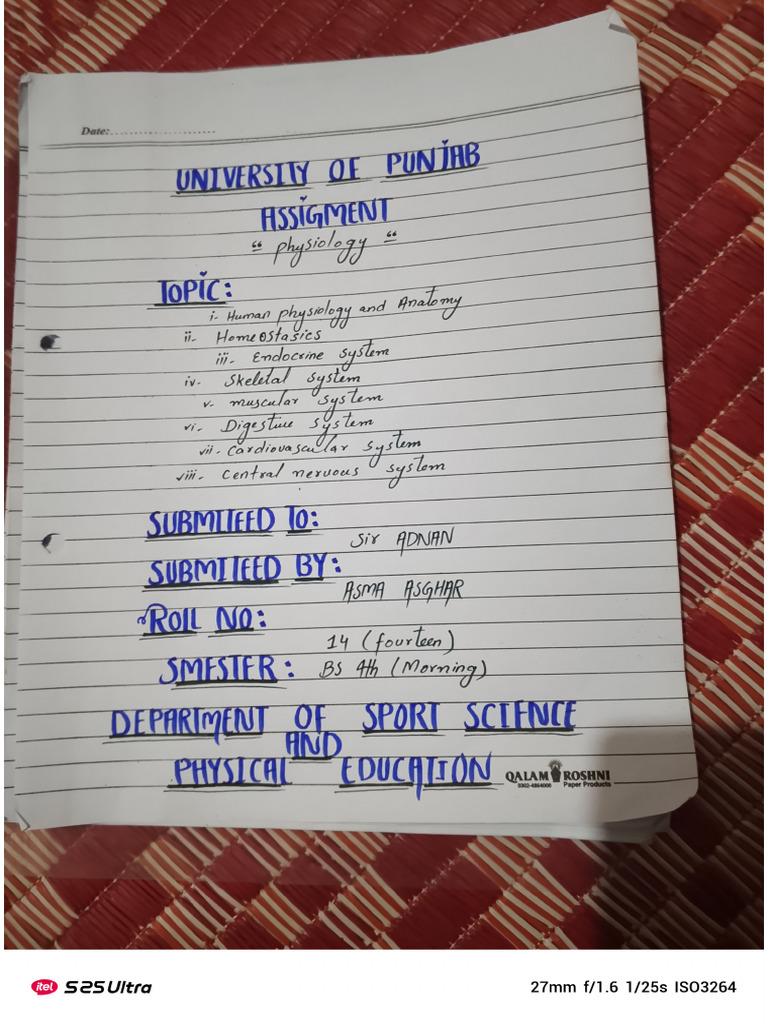 Date:........................
UNIVERSITY OF PUNJAB
ASSIGMENT
“ physiology “
TOPIC:
i. Human physiology and Anatomy
ii. Homeostasics
iii. Endocrine system
iv. Skeletal system
v. muscular system
vi. Digestive system
vii. Cardiovascular system
viii. Central nervous system
SUBMITEED TO:
Sir ADNAN
SUBMITEED BY:
ASMA ASGHAR
ROLL NO:
14 (fourteen)
SMESTER: BS 4th (Morning)
DEPARTMENT OF SPORT SCIENCE
AND
PHYSICAL EDUCATION
QALAM ROSHNI
0302-4864006 Paper Products
itel S25 Ultra 27mm f/1.6 1/25s ISO3264